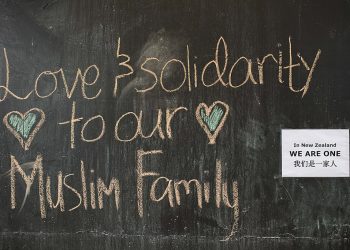 Love & solidarity
to our
Muslim Family
In New Zealand
WE ARE ONE
我们是一家人